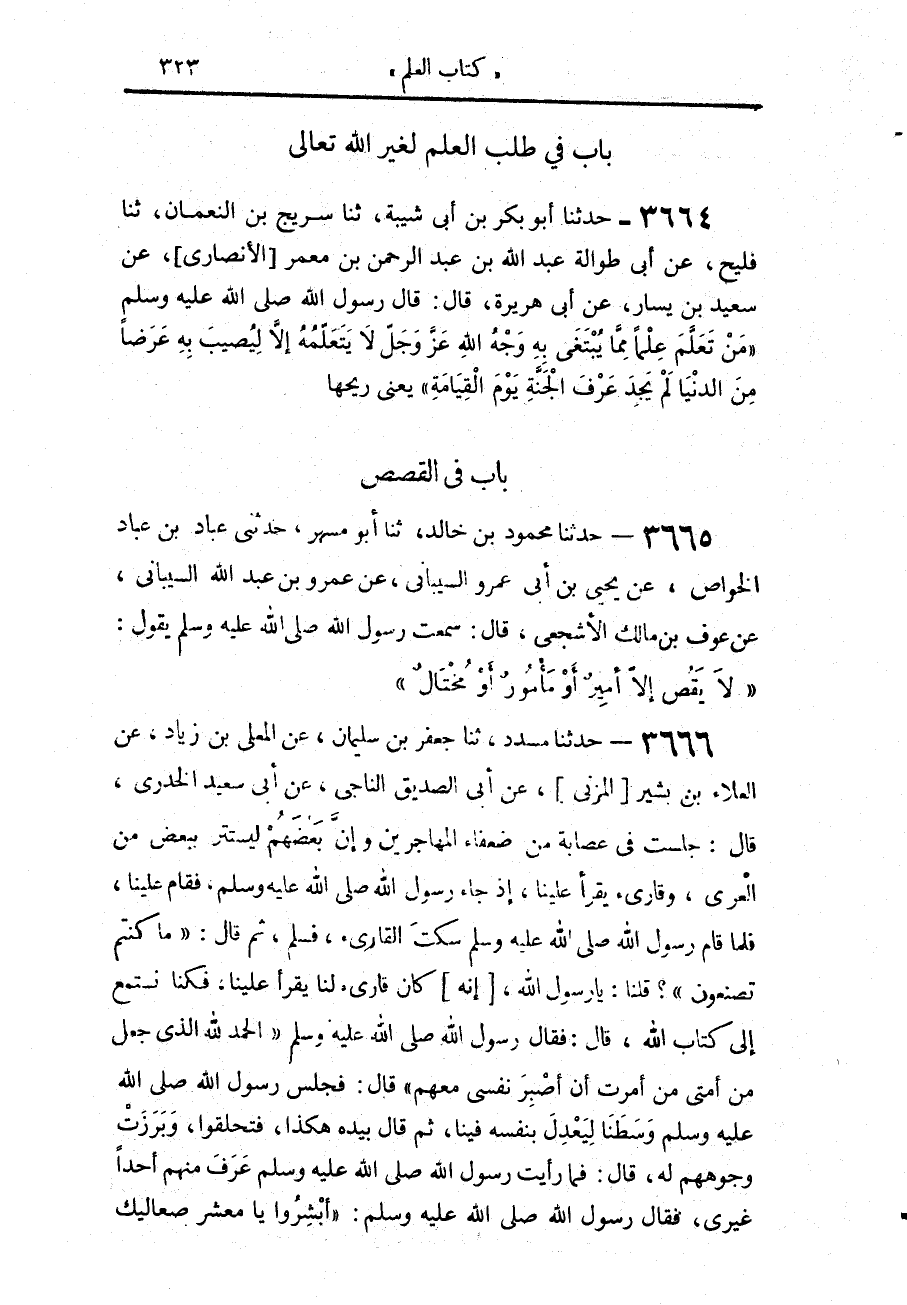 « كتاب العلم » ٣٢٣
باب في طلب العلم لغير الله تعالى
٣٦٦٤ ـ حدثنا أبو بكر بن أبى شيبة، ثنا سريج بن النعمان، ثنا
فليح، عن أبى طوالة عبد الله بن عبد الرحمن بن معمر [الأنصارى]، عن
سعيد بن يسار، عن أبى هريرة، قال: قال رسول الله صلى الله عليه وسلم
«مَنْ تَعَلَّمَ عِلْماً مِمَّا يُبْتَغَى بِهِ وَجْهُ اللهِ عَزَّ وَجَلّ لَا يَتَعَلّمُهُ إلَّا لِيُصيبَ بِهِ عَرَضاً
مِنَ الدنْيَا لَمْ يَجِدَ عَرْفَ الْجَنَّةِ يَوْمَ الْقِيَامَةِ» يعنى ريحها
باب فى القصص
٣٦٦٥ — حدثنا محمود بن خالد، ثنا أبو مسهر ، حدثنى عباد بن عباد
الخواص ، عن يحيى بن أبى عمرو السيبانى ، عن عمرو بن عبد الله السيبانى ،
عن عوف بن مالك الأشجعى ، قال: سمعت رسول الله صلى الله عليه وسلم يقول :
« لاَ يَقُص إلاّ أميرٌ أَوْ مَأْمُورٌ أَوْ مُخْتَالٌ »
٣٦٦٦ — حدثنا مسدد ، ثنا جعفر بن سليمان ، عن المعلى بن زياد ، عن
العلاء بن بشير [ المزنى ] ، عن أبى الصديق الناجى ، عن أبى سعيد الخدرى ،
قال : جلست فى عصابة من ضعفاء المهاجرين و إنَّ بَعْضَهُمْ ليستتر ببعض من
العرى ، وقارىء يقرأ علينا ، إذ جاء رسول الله صلى الله عليه وسلم، فقام علينا ،
فلما قام رسول الله صلى الله عليه وسلم سكتَ القارىء ، فسلم ، ثم قال : « ما كنتم
تصنعون »؟ قلنا : يارسول الله ، [ إنه ] كان قارىء لنا يقرأ علينا، فكنا نستمع
إلى كتاب الله ، قال : فقال رسول الله صلى الله عليه وسلم « الحمد لله الذى جعل
من أمتى من أمرت أن أصْبِرَ نفسى معهم» قال: فجلس رسول الله صلى الله
عليه وسلم وَسَطَنَا لِيَعْدِلَ بنفسه فينا، ثم قال بيده هكذا، فتحلقوا، وَبَرَزَتْ
وجوههم له، قال: فما رأيت رسول الله صلى الله عليه وسلم عَرَفَ منهم أحداً
غيرى، فقال رسول الله صلى الله عليه وسلم: «أبْشِرُوا يا معشر صعاليك